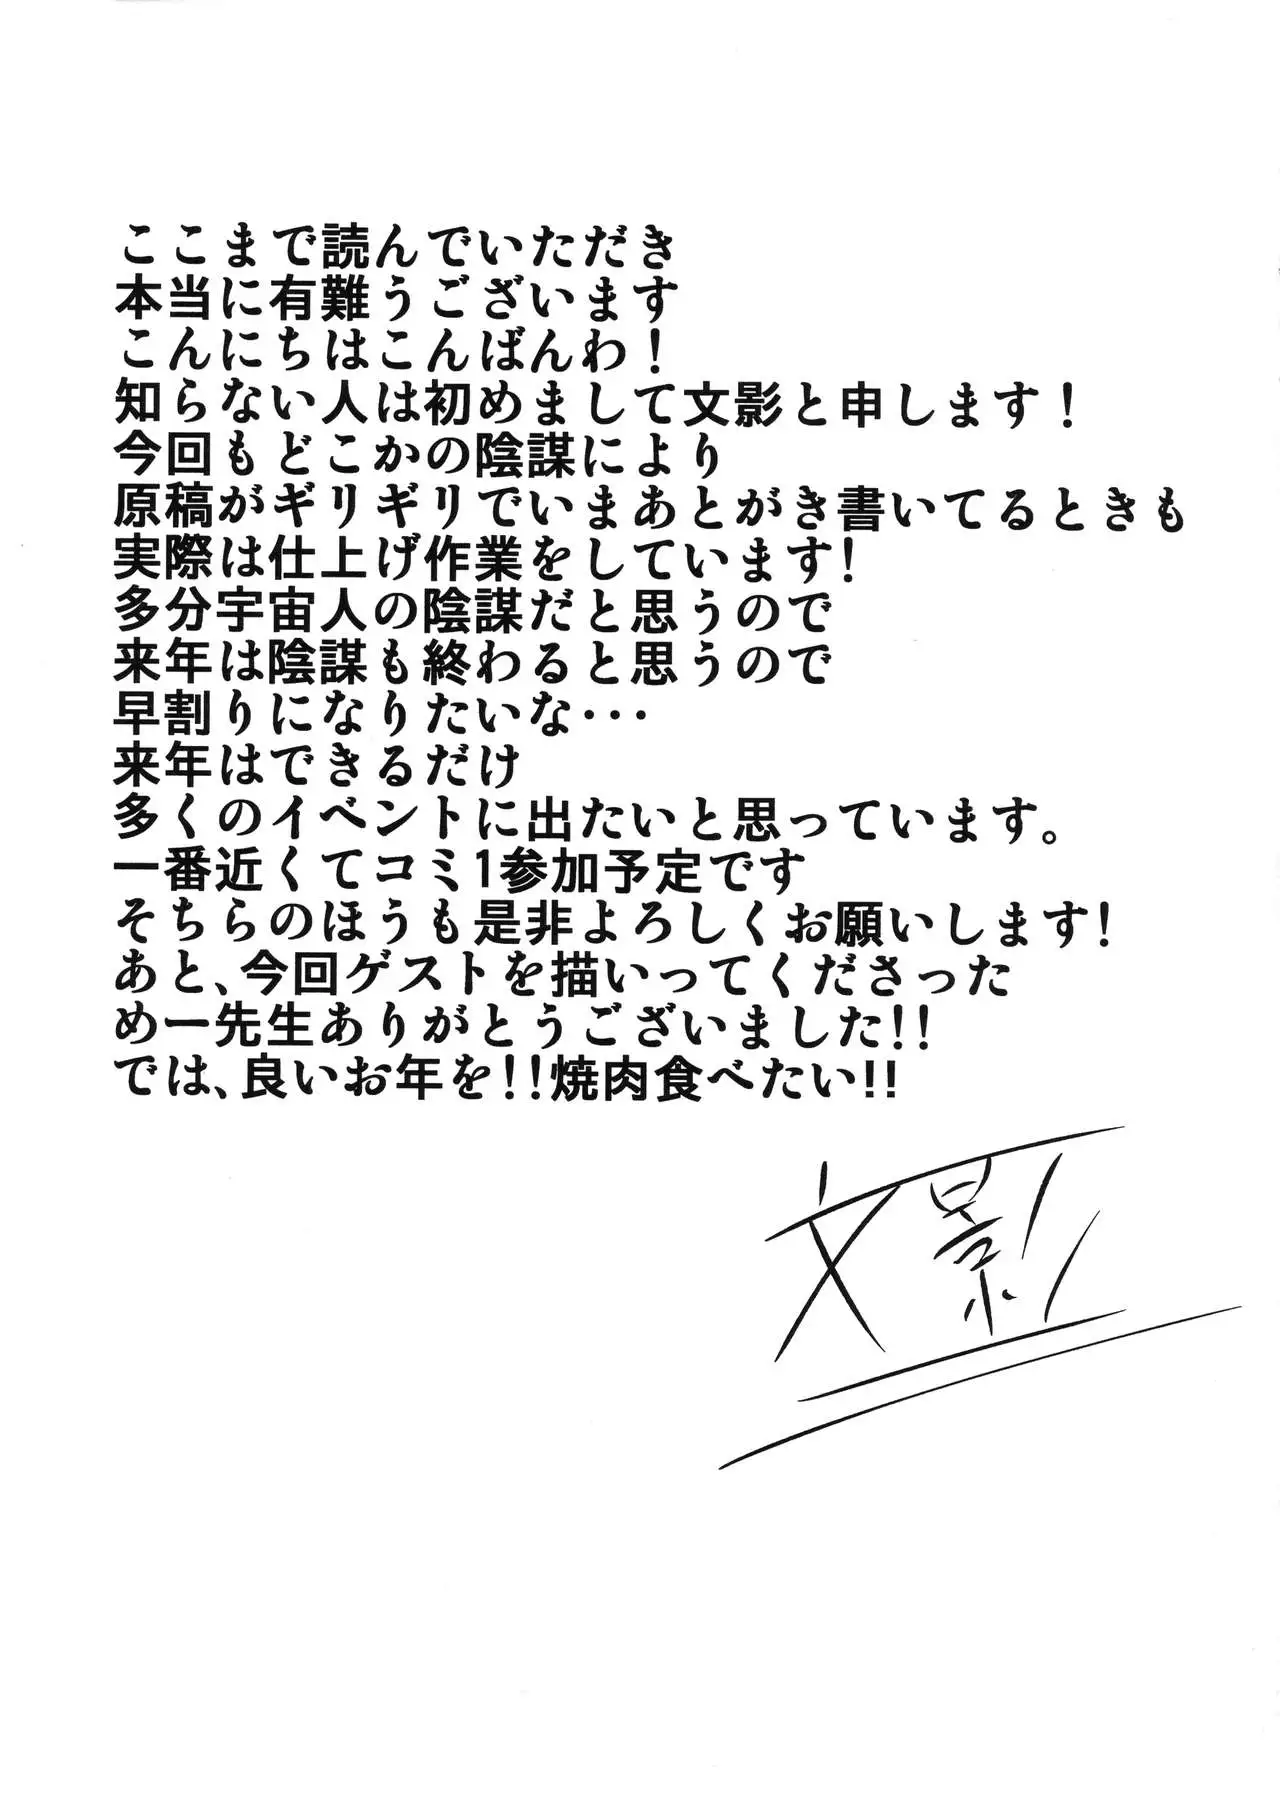 ここまで読んでいただき
本当に有難うございます
こんにちはこんばんわ！
知らない人は初めまして文影と申します！
今回もどこかの陰謀により
原稿がギリギリでいまあとがき書いてるときも
実際は仕上げ作業をしています!
多分宇宙人の陰謀だと思うので
来年は陰謀も終わると思うので
早割りになりたいな･･･
来年はできるだけ
多くのイベントに出たいと思っています。
一番近くてコミ1参加予定です
そちらのほうも是非よろしくお願いします!
あと、今回ゲストを描いってくださった
め一先生ありがとうございました!!
では、良いお年を!!焼肉食べたい!!
文影